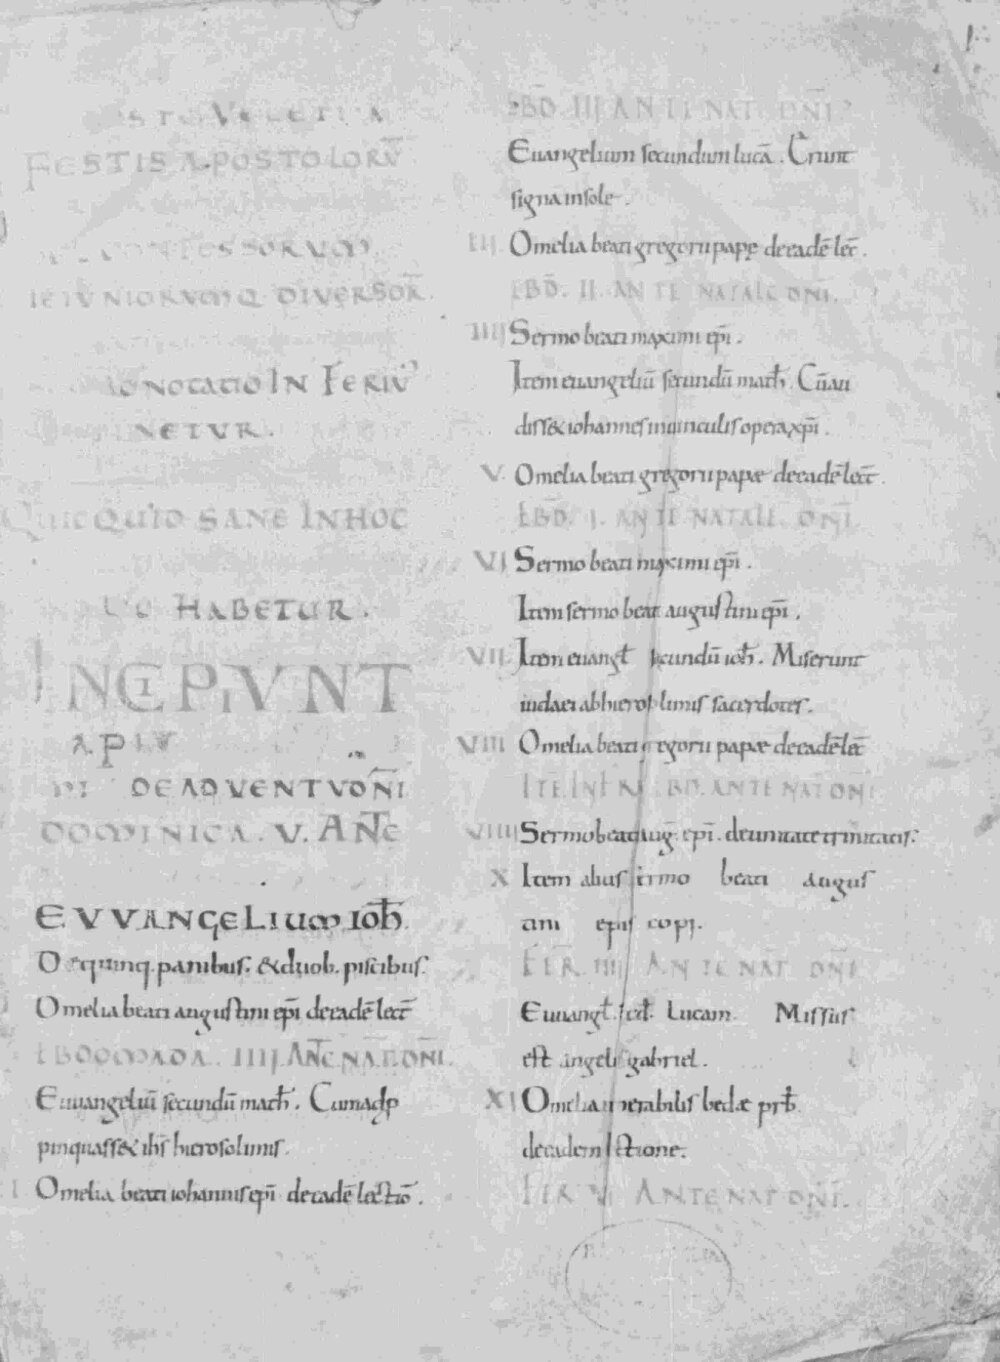 FESTIS APOSTOLORṼ
IEIVNIORVMQ DIVERSOR̄.
NOTATIO IN FERIV̄
NETVR.
QUICQUID SANE IN HOC
HABETUR.
INCIPIVNT
DE ADVENTV DN̄I
DOMINICA. V. AN̄TE
EVVANGELIUM IOH̄.
De quinq. panibus. & duob. piscibus.
Omelia beati augustini ep̄i de eadē lect̄
EBDOMADA. IIII. AN̄TE NAT̄. DN̄I.
Euuangeliū secundū math̄. Cum adp
pinquass& ih̄s hierosolimis.
I Omelia beati iohannis ep̄i de eadē lectiō.
EBD̄. III ANTE NAT̄ DN̄I
Euangelium secundum lucā. Erunt
signa in sole.
III. Omelia beati gregorii papę de eadē lect̄.
EBD̄. II. ANTE NATALE DN̄I.
IIII Sermo beati maximi ep̄i.
Item euangeliū secundū math̄. Cū au
diss& iohannes in uinculis opera xp̄i.
V. Omelia beati gregorii papae de eadē lect̄.
EBD̄. I. ANTE NATALE. DN̄I
VI Sermo beati maximi ep̄i.
Item sermo beati augustini ep̄i.
VII. Item euangł secundū ioh̄. Miserunt
iudaei ab hierosolimis sacerdotes.
VIII Omelia beati gregorii papae de eadē lect̄
ANTE NAT̄ DN̄I
VIIII Sermo beati auḡ. ep̄i. de unitate trinitatis.
X Item alius sermo beati augus
tini episcopi.
FER̄. IIII ANTE NAT̄ DN̄I
Euuangł. scd̄. Lucam. Missus
est angelus gabriel.
XI Omelia uenerabilis bedae prb̄
de eadem lectione.
FER VI ANTE NAT DN̄I.